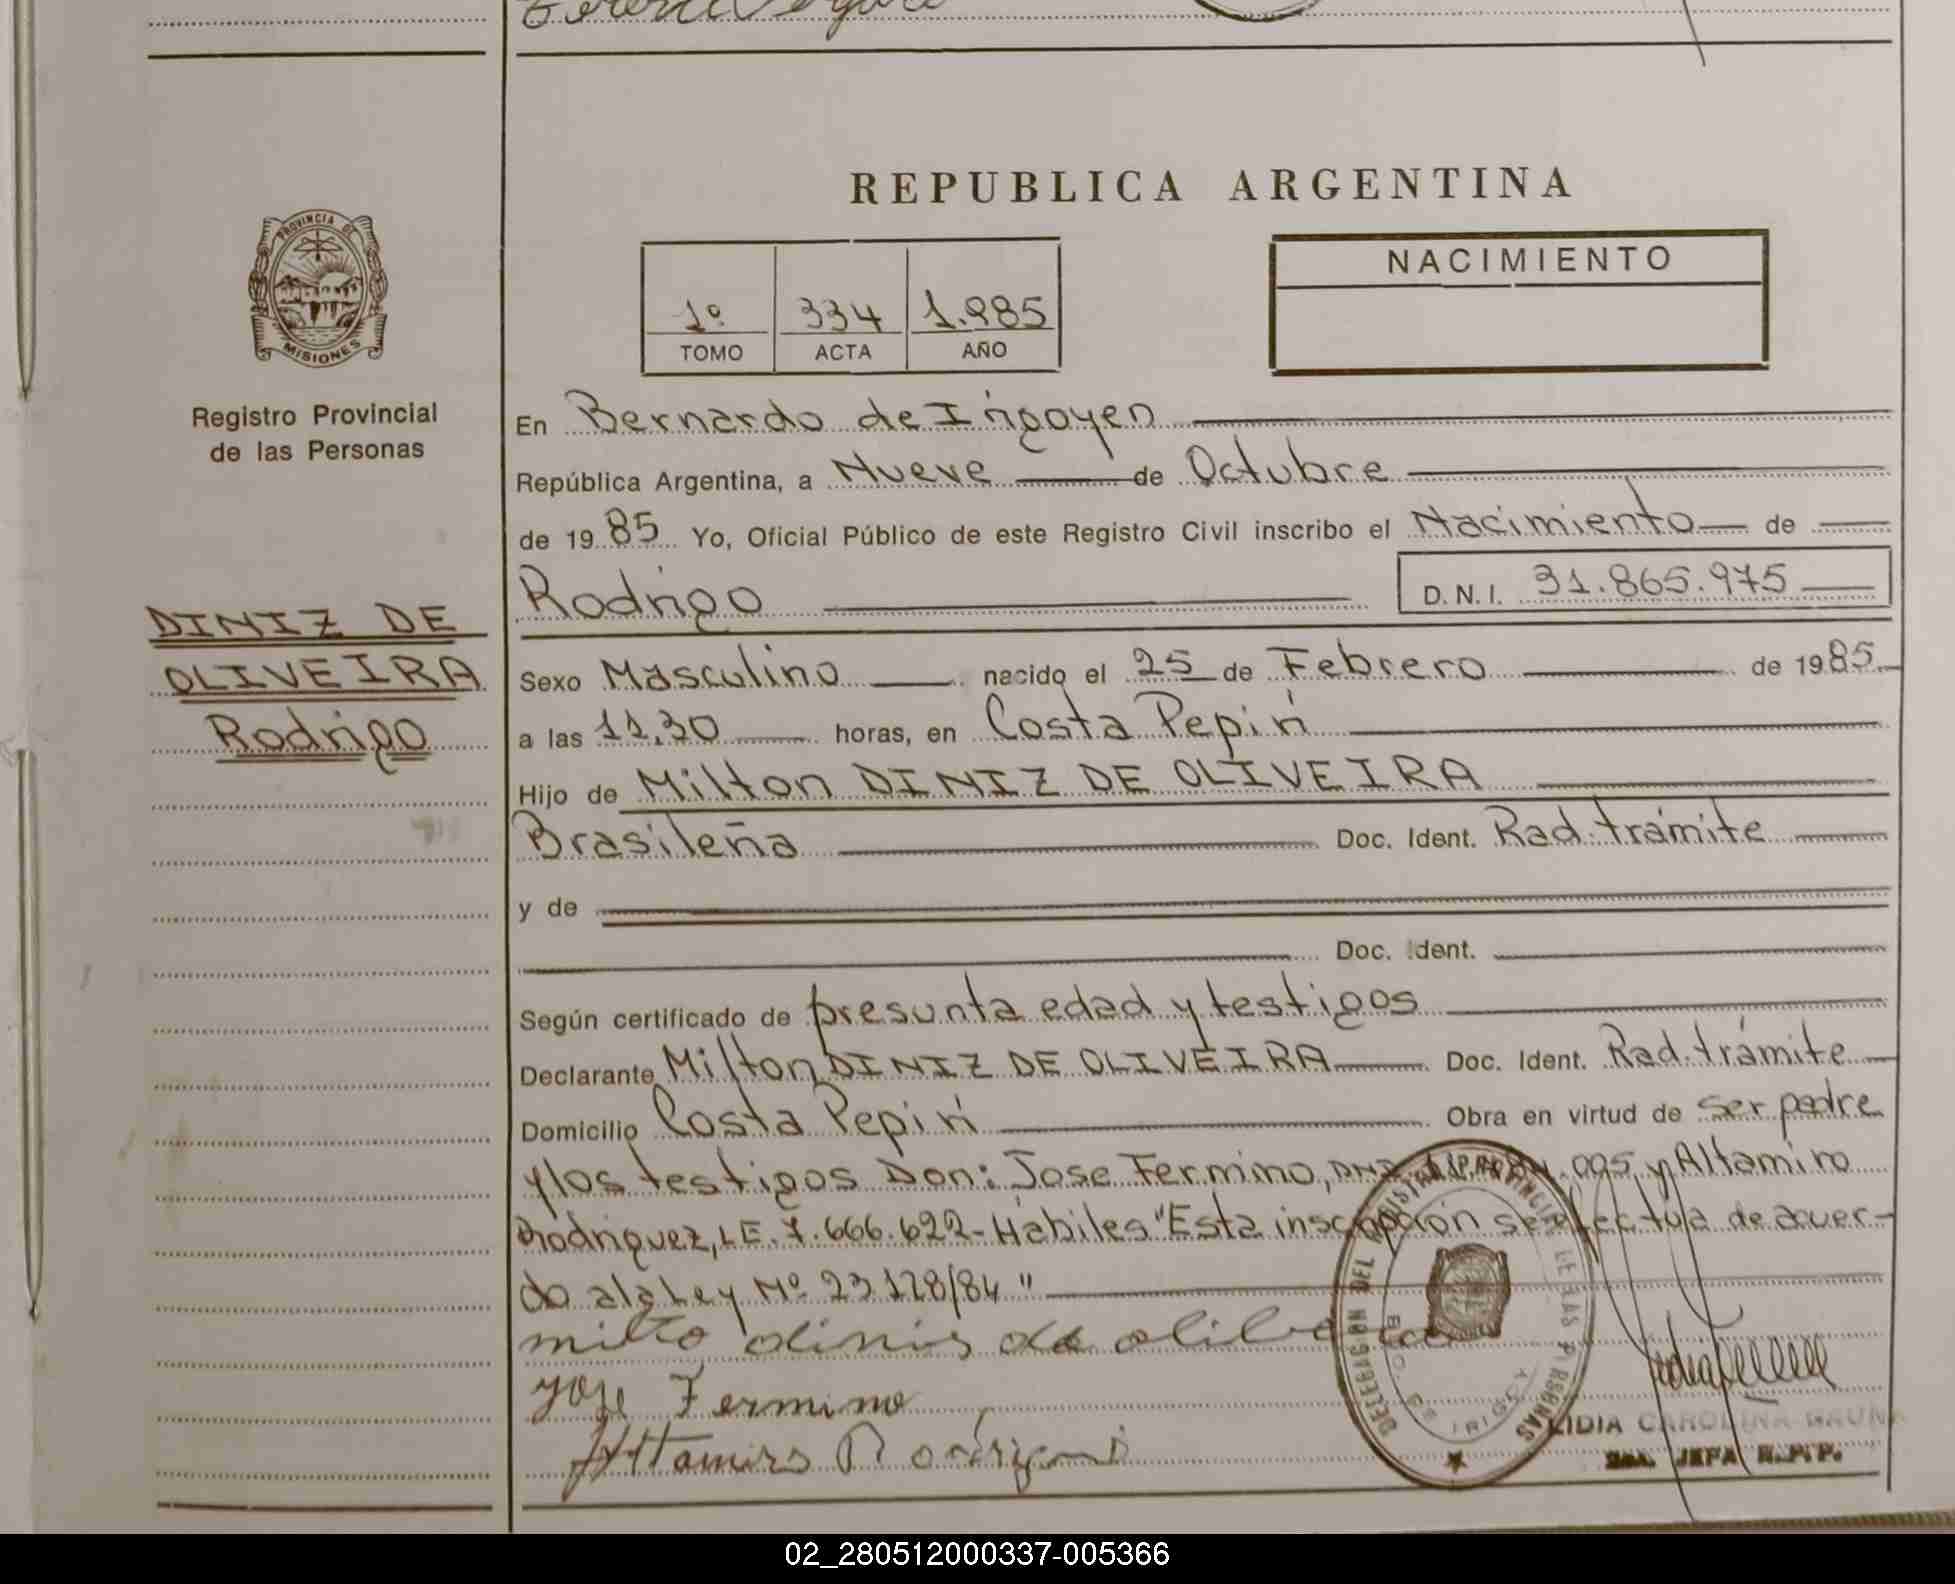 REPUBLICA ARGENTINA
PROVINCIA DE
MISIONES
Registro Provincial
de las Personas
DINIZ DE
OLIVEIRA
Rodrigo
1º 334 1.985
TOMO ACTA AÑO
NACIMIENTO
En Bernardo de Irigoyen
República Argentina, a Nueve de Octubre
de 1985 Yo, Oficial Público de este Registro Civil inscribo el Nacimiento de
Rodrigo D.N.I. 31.865.975
Sexo Masculino nacido el 25 de Febrero de 1985
a las 11,30 horas, en Costa Pepirí
Hijo de Milton DINIZ DE OLIVEIRA
Brasileña Doc. Ident. Rad.trámite
y de
Doc. Ident.
Según certificado de presunta edad y testigos
Declarante Milton DINIZ DE OLIVEIRA Doc. Ident. Rad.trámite
Domicilio Costa Pepirí Obra en virtud de ser padre
y los testigos Don: Jose Fermino, DNI y Altamiro
Rodriguez, LE. 7.666.622- Hábiles "Esta inscripción se efectua de acuer-
do a la Ley Nº 23128/84"
milto dinis de olibera
Jose Fermino
Altamiro Rodrigues
DELEGACION DEL REGISTRO PROVINCIAL DE LAS PERSONAS
BDO. DE IRIGOYEN
LIDIA CAROLINA GAUNA
JEFA R.P.P.
02_280512000337-005366